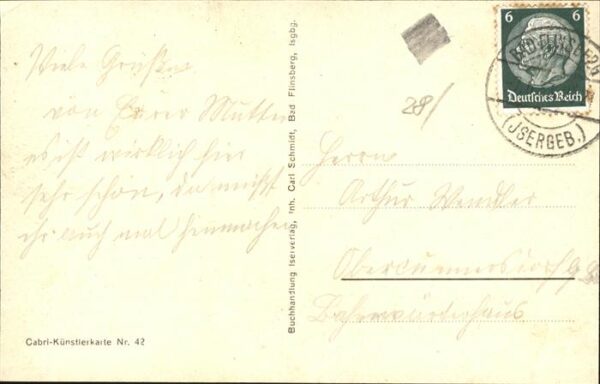 Viele Grüße
von Eurer Mutter
es ist wirklich hier
sehr schön, da müßt
ihr auch mal
Cabri-Künstlerkarte Nr. 42
Buchhandlung Iserverlag, Inh. Carl Schmidt, Bad Flinsberg, Isgbg.
28/
6 6
Deutsches Reich
BAD FLINSBERG
(ISERGEB.)
Herrn
Arthur Wendler